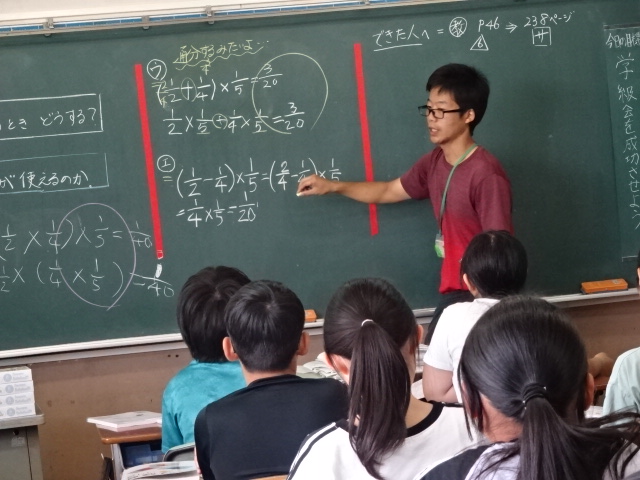 とき どうする?
が使えるのか.
1/2 × 1/4) × 1/5 = 1/40
1/2 × (1/4 × 1/5) 1/40
通分する
ウ
(1/2 + 1/4) × 1/5 = 3/20
1/2 × 1/5 + 1/4 × 1/5 = 3/20
エ
= (1/2 - 1/4) × 1/5 = (2/4 - 1/4) × 1/5
= 1/4 × 1/5 = 1/20
できた人へ = 教 P46 ⇒ 238ページ
6 サ
学級会を成功